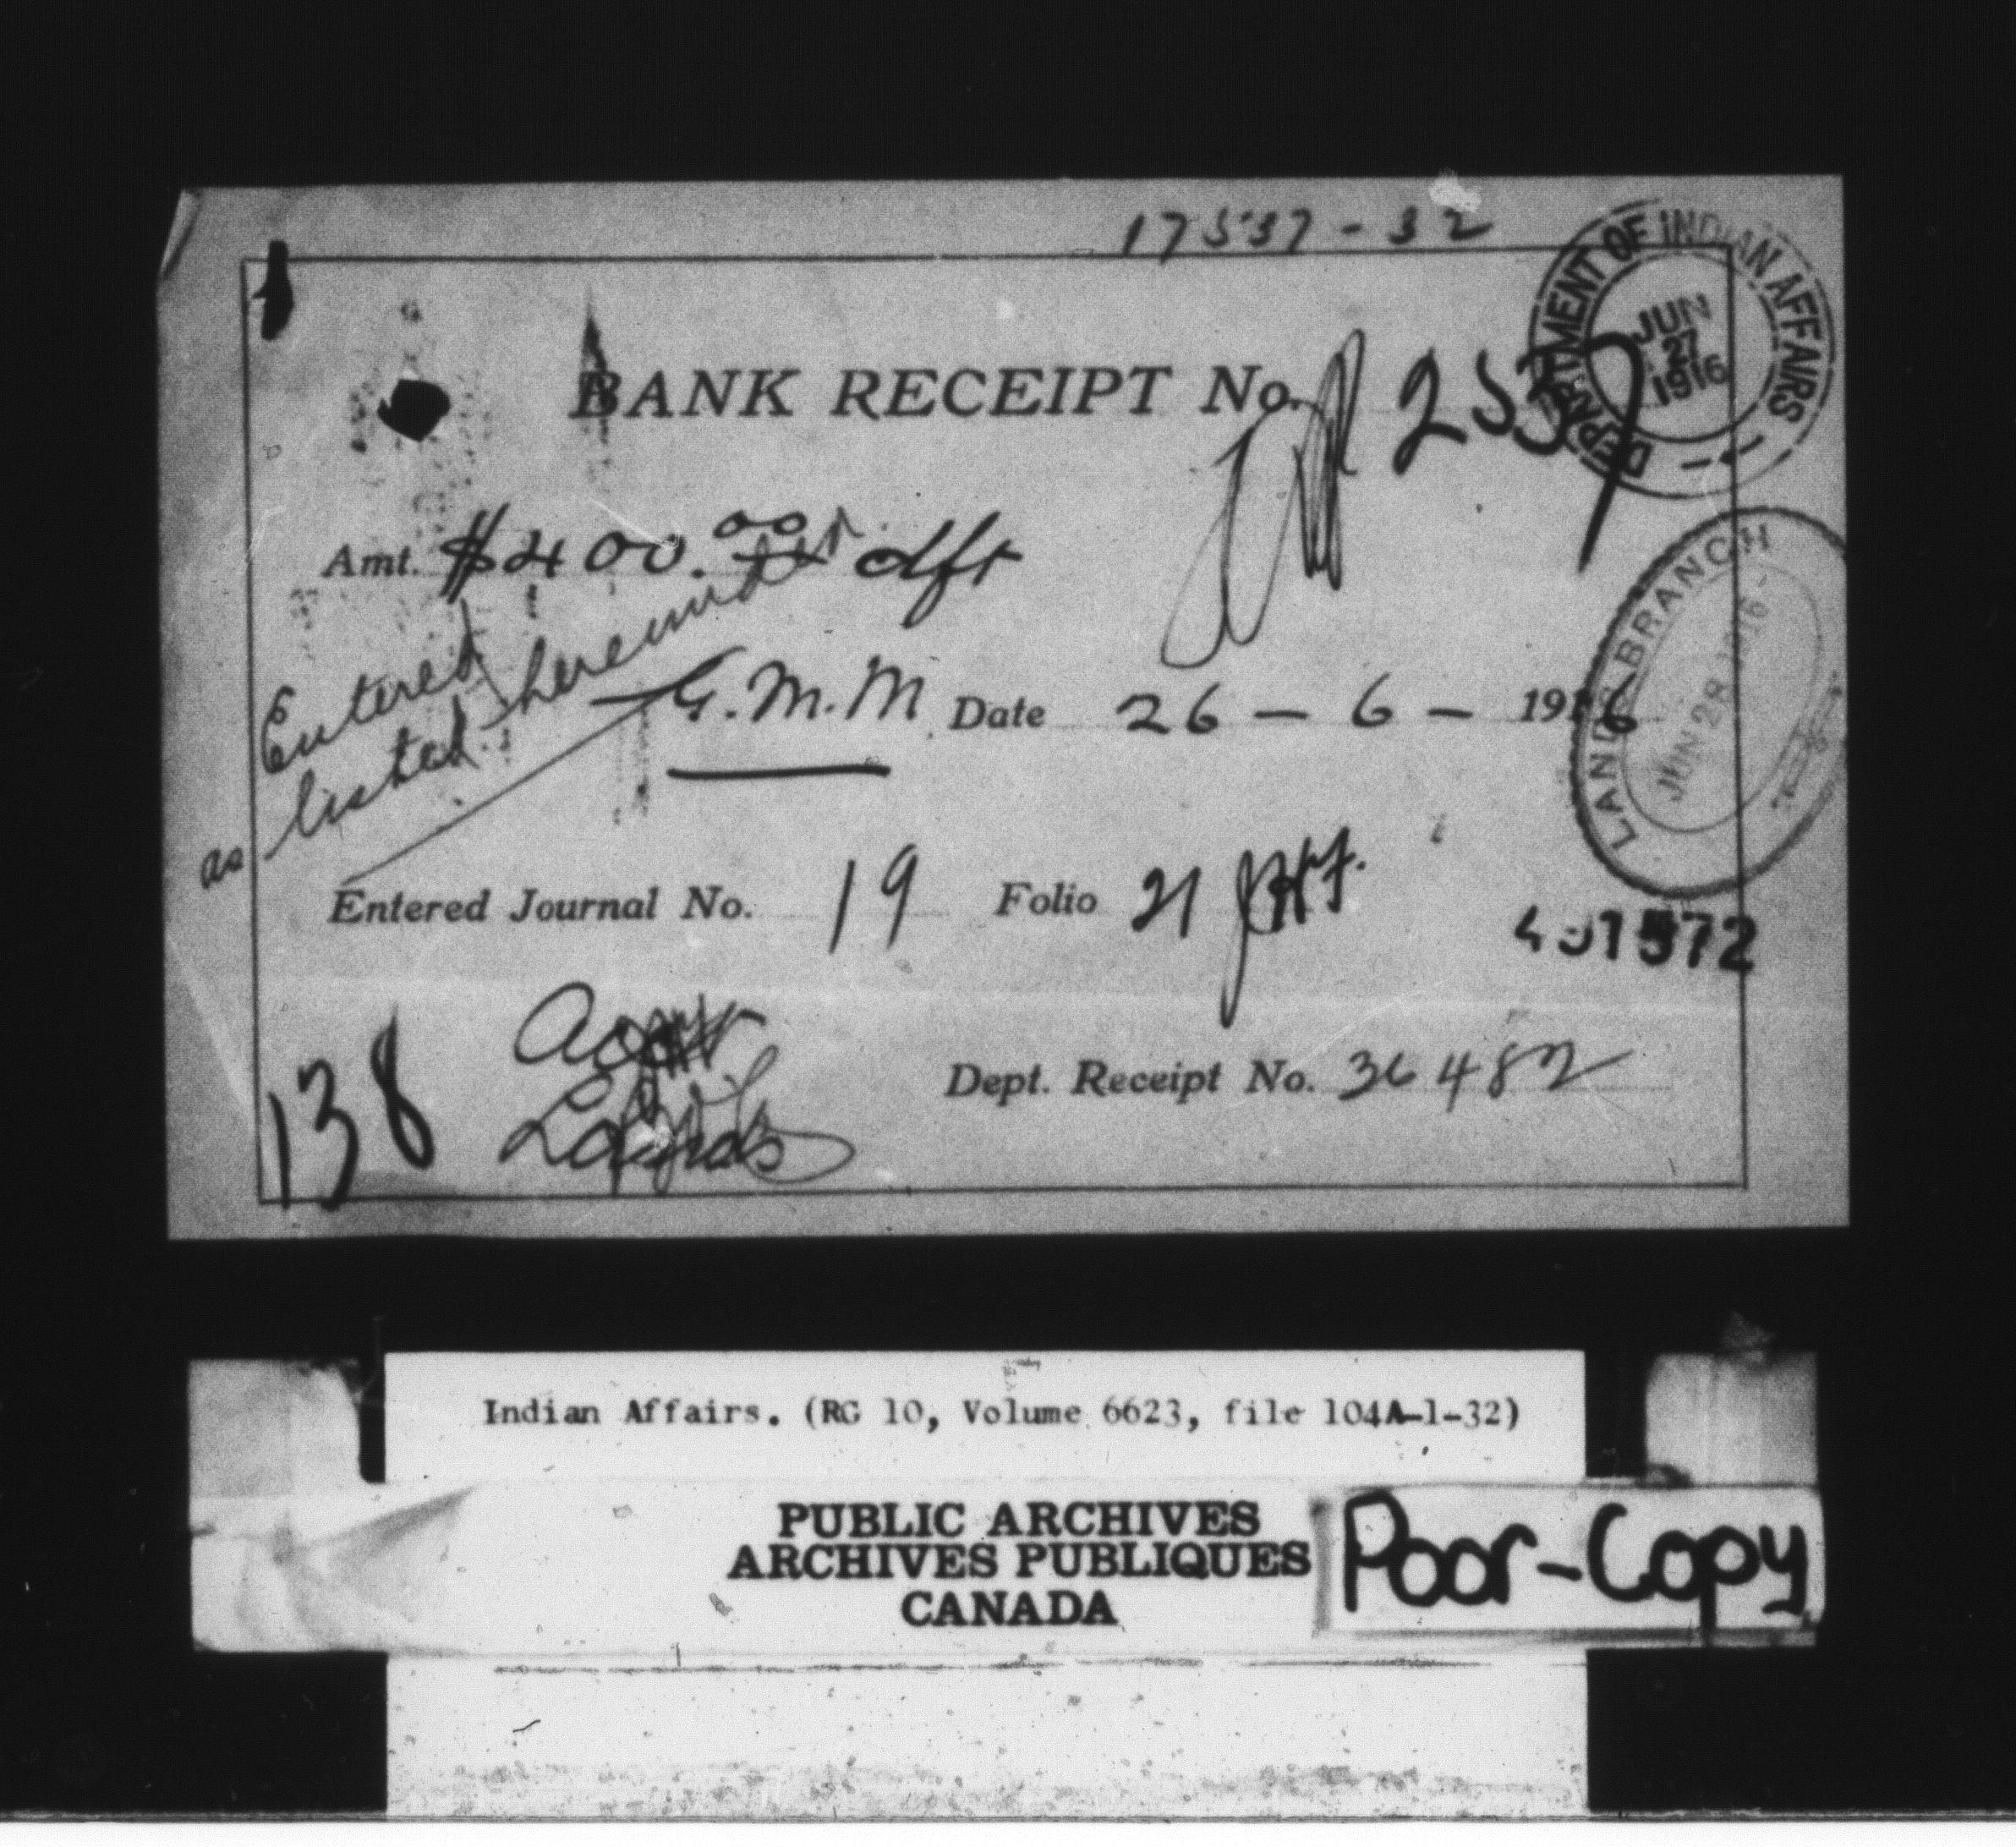 17537-32
DEPARTMENT OF INDIAN AFFAIRS
JUN
27
1916
BANK RECEIPT No. 2537
Amt. $400.00 dft
Entered
as listed hereunder
G.M.M. Date 26 - 6 - 1916
LANDS BRANCH
JUN 28 1916
Entered Journal No. 19 Folio 21
491572
138
Lands
Dept. Receipt No. 36482
Indian Affairs. (RG 10, Volume 6623, file 104A-1-32)
PUBLIC ARCHIVES
ARCHIVES PUBLIQUES
CANADA
Poor-Copy